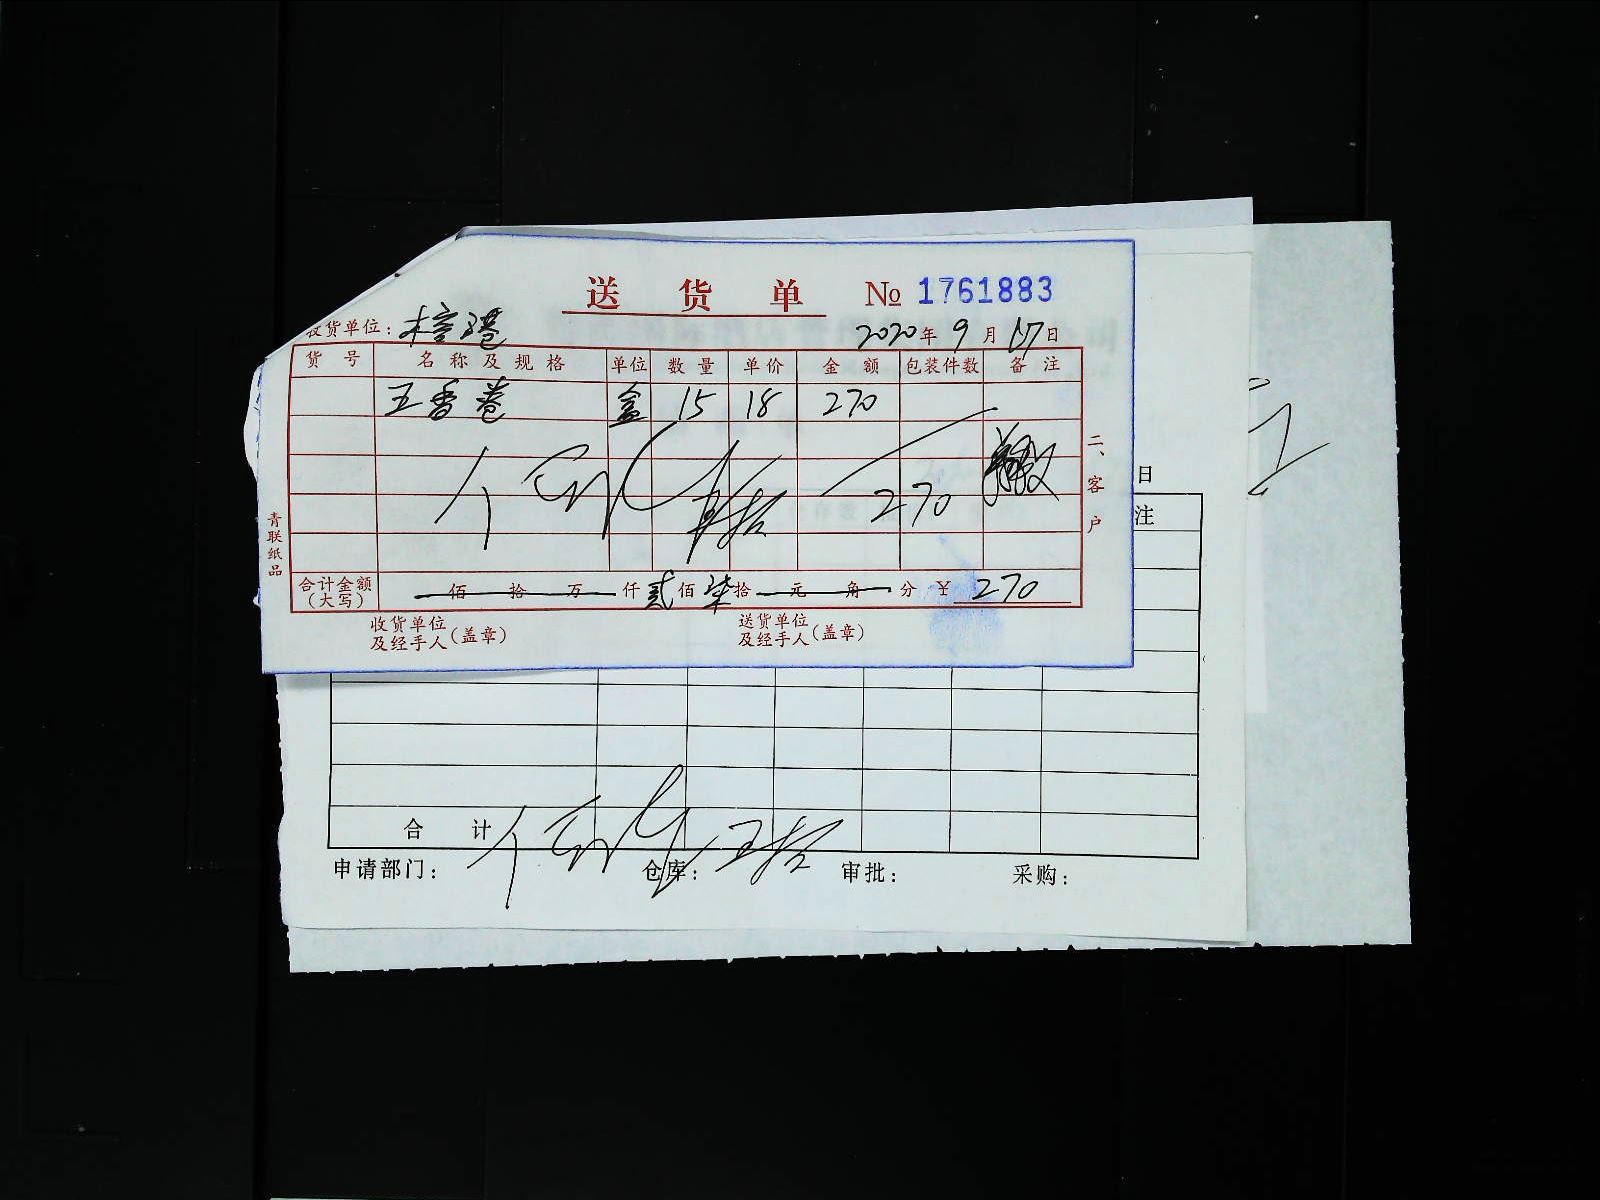 送货单 № 1761883
收货单位：
2020年9月17日
货号 名称及规格 单位 数量 单价 金额 包装件数 备注
五香卷 盒 15 18 270
270
二、客户
青联纸品
合计金额（大写） 佰 拾 万 仟 贰 佰 柒 拾 元 角 分 ￥ 270
收货单位及经手人（盖章）
送货单位及经手人（盖章）
日
注
合计
申请部门： 仓库： 审批： 采购：